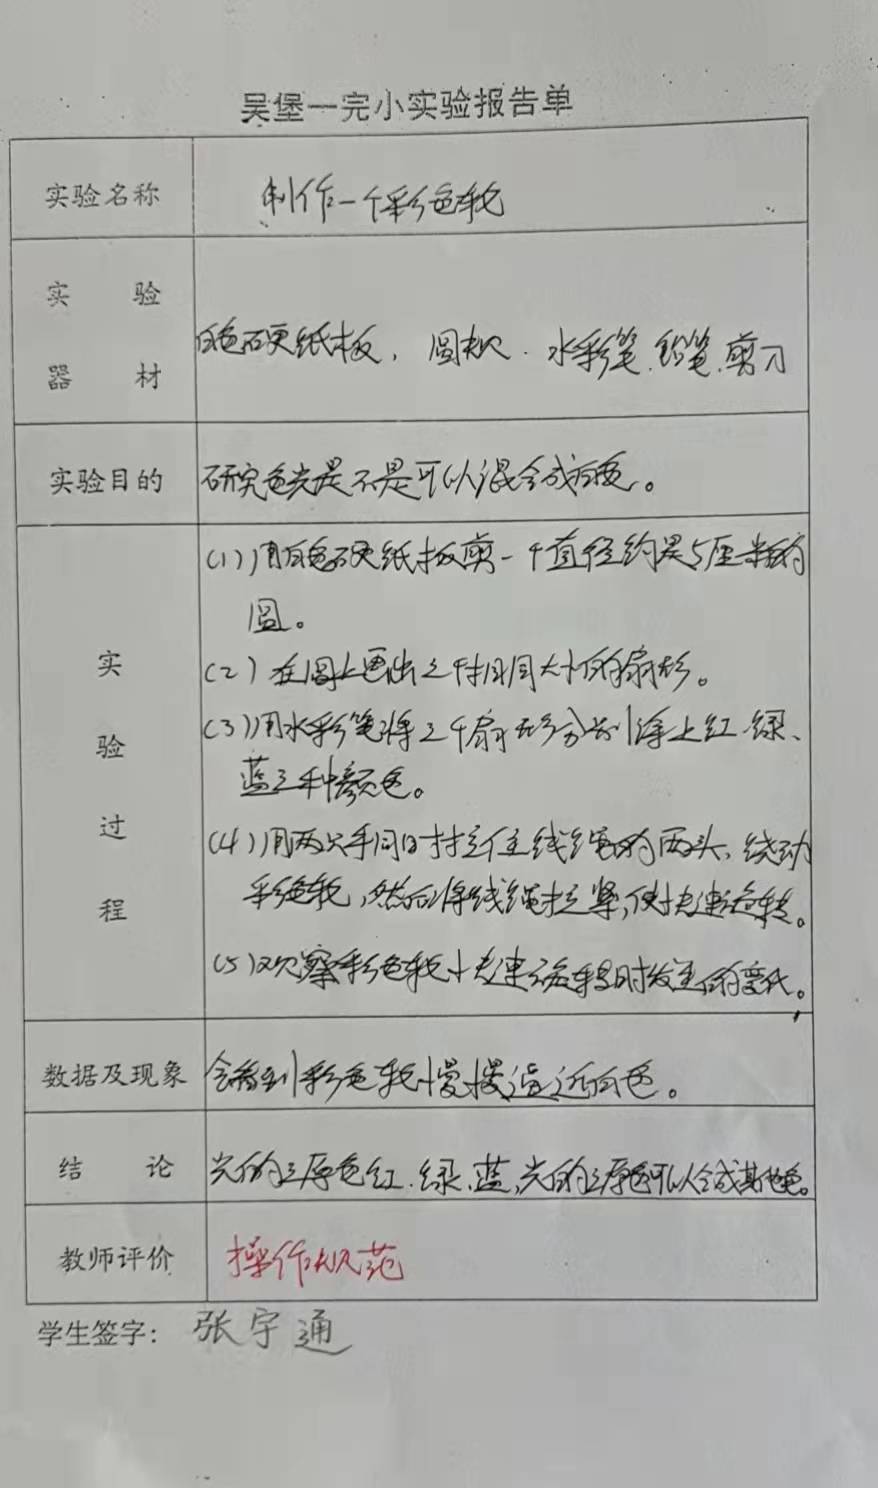 吴堡一完小实验报告单
实验名称 制作一个彩色轮
实验器材 白色硬纸板、圆规、水彩笔、铅笔、剪刀
实验目的 研究色光是不是可以混合成白色。
实验过程
(1)用白色硬纸板剪一个直径约是5厘米的
圆。
(2)在圆上画出3个相同大小的扇形。
(3)用水彩笔将3个扇形分别涂上红、绿、
蓝三种颜色。
(4)用两只手同时拉住线绳的两头、绕动
彩色轮,然后将线绳拉紧,使快速旋转。
(5)观察彩色轮快速旋转时发生的变化。
数据及现象 会看到彩色轮慢慢逼近白色。
结论 光的三原色红、绿、蓝,光的三原色可以合成其他色。
教师评价 操作规范
学生签字: 张宇通